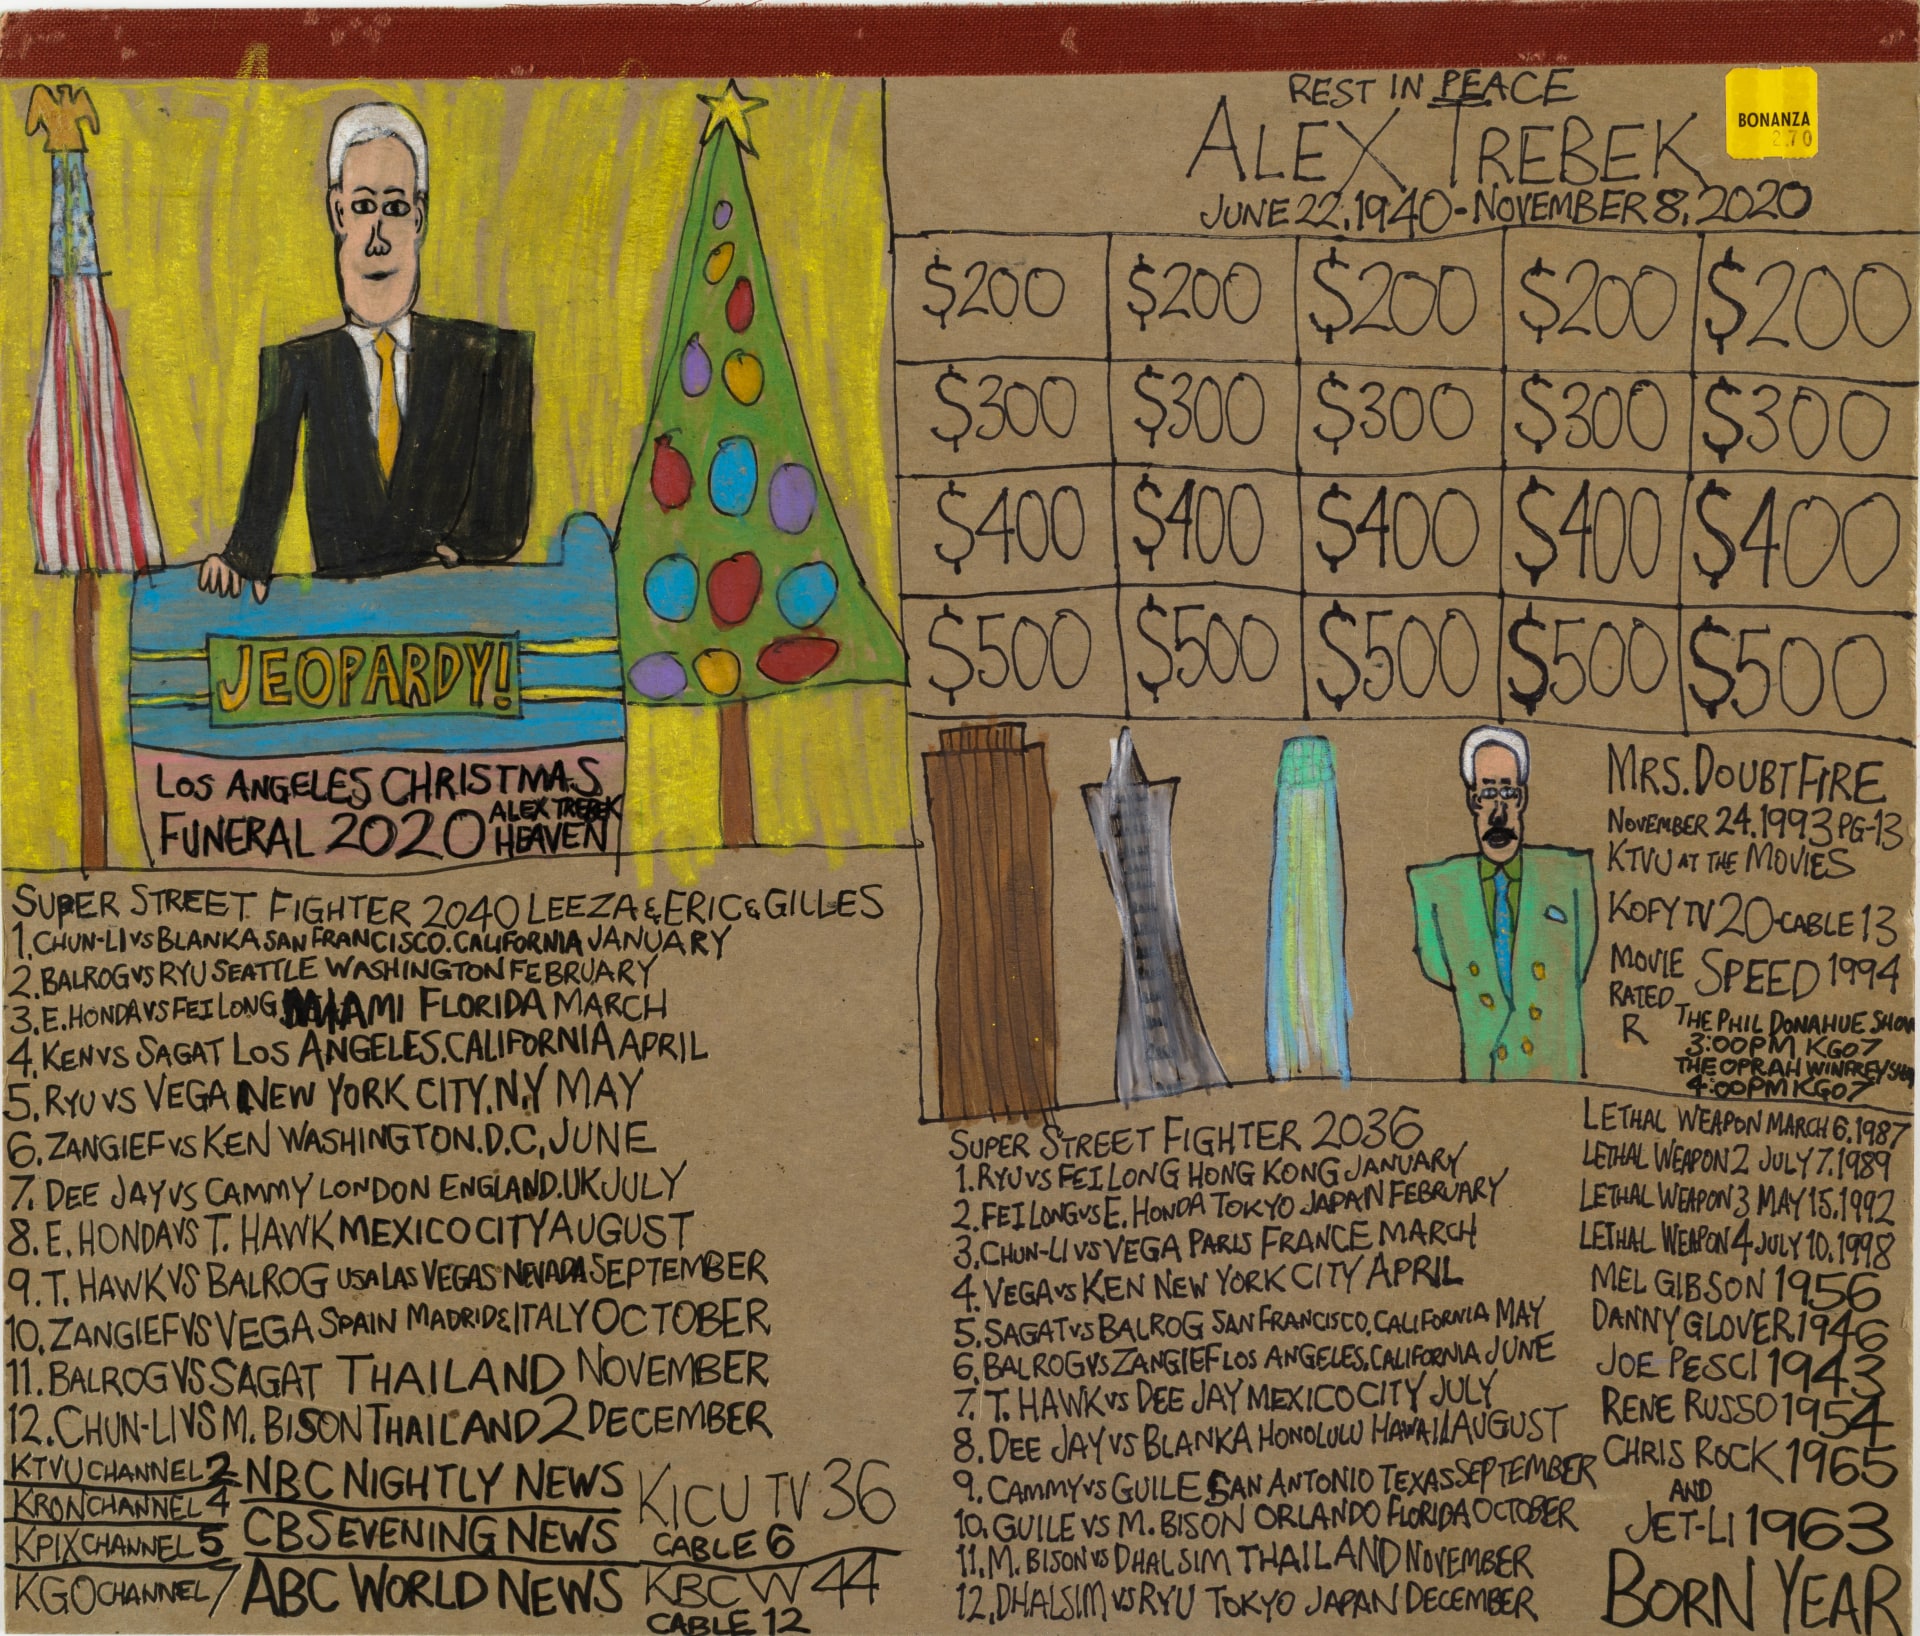 REST IN PEACE
ALEX TREBEK
JUNE 22,1940-NOVEMBER 8,2020
BONANZA
2.70
$200 $200 $200 $200 $200
$300 $300 $300 $300 $300
$400 $400 $400 $400 $400
$500 $500 $500 $500 $500
JEOPARDY!
LOS ANGELES CHRISTMAS
FUNERAL 2020 ALEX TREBEK
HEAVEN
MRS. DOUBTFIRE
NOVEMBER 24,1993 PG-13
KTVU AT THE MOVIES
KOFY TV 20-CABLE 13
MOVIE SPEED 1994
RATED
R
THE PHIL DONAHUE SHOW
3:00PM KGO7
THE OPRAH WINFREY SHOW
4:00PM KGO7
SUPER STREET FIGHTER 2040 LEEZA & ERIC & GILLES
1. CHUN-LI VS BLANKA SAN FRANCISCO, CALIFORNIA JANUARY
2. BALROG VS RYU SEATTLE WASHINGTON FEBRUARY
3. E. HONDA VS FEI LONG MIAMI FLORIDA MARCH
4. KEN VS SAGAT LOS ANGELES, CALIFORNIA APRIL
5. RYU VS VEGA NEW YORK CITY, N,Y MAY
6. ZANGIEF VS KEN WASHINGTON. D.C, JUNE
7. DEE JAY VS CAMMY LONDON ENGLAND. UK JULY
8. E. HONDA VS T. HAWK MEXICO CITY AUGUST
9. T. HAWK VS BALROG USA LAS VEGAS NEVADA SEPTEMBER
10. ZANGIEF VS VEGA SPAIN MADRID & ITALY OCTOBER
11. BALROG VS SAGAT THAILAND NOVEMBER
12. CHUN-LI VS M. BISON THAILAND 2 DECEMBER
KTVU CHANNEL 2
KRON CHANNEL 4
KPIX CHANNEL 5
KGO CHANNEL 7
NBC NIGHTLY NEWS
CBS EVENING NEWS
ABC WORLD NEWS
KICU TV 36
CABLE 6
KBCW 44
CABLE 12
SUPER STREET FIGHTER 2036
1. RYU VS FEI LONG HONG KONG JANUARY
2. FEI LONG VS E. HONDA TOKYO JAPAN FEBRUARY
3. CHUN-LI VS VEGA PARIS FRANCE MARCH
4. VEGA VS KEN NEW YORK CITY APRIL
5. SAGAT VS BALROG SAN FRANCISCO, CALIFORNIA MAY
6. BALROG VS ZANGIEF LOS ANGELES, CALIFORNIA JUNE
7. T. HAWK VS DEE JAY MEXICO CITY JULY
8. DEE JAY VS BLANKA HONOLULU HAWAII AUGUST
9. CAMMY VS GUILE SAN ANTONIO TEXAS SEPTEMBER
10. GUILE VS M. BISON ORLANDO FLORIDA OCTOBER
11. M. BISON VS DHALSIM THAILAND NOVEMBER
12. DHALSIM VS RYU TOKYO JAPAN DECEMBER
LETHAL WEAPON MARCH 6,1987
LETHAL WEAPON 2 JULY 7,1989
LETHAL WEAPON 3 MAY 15,1992
LETHAL WEAPON 4 JULY 10,1998
MEL GIBSON 1956
DANNY GLOVER 1946
JOE PESCI 1943
RENE RUSSO 1954
CHRIS ROCK 1965
AND
JET-LI 1963
BORN YEAR